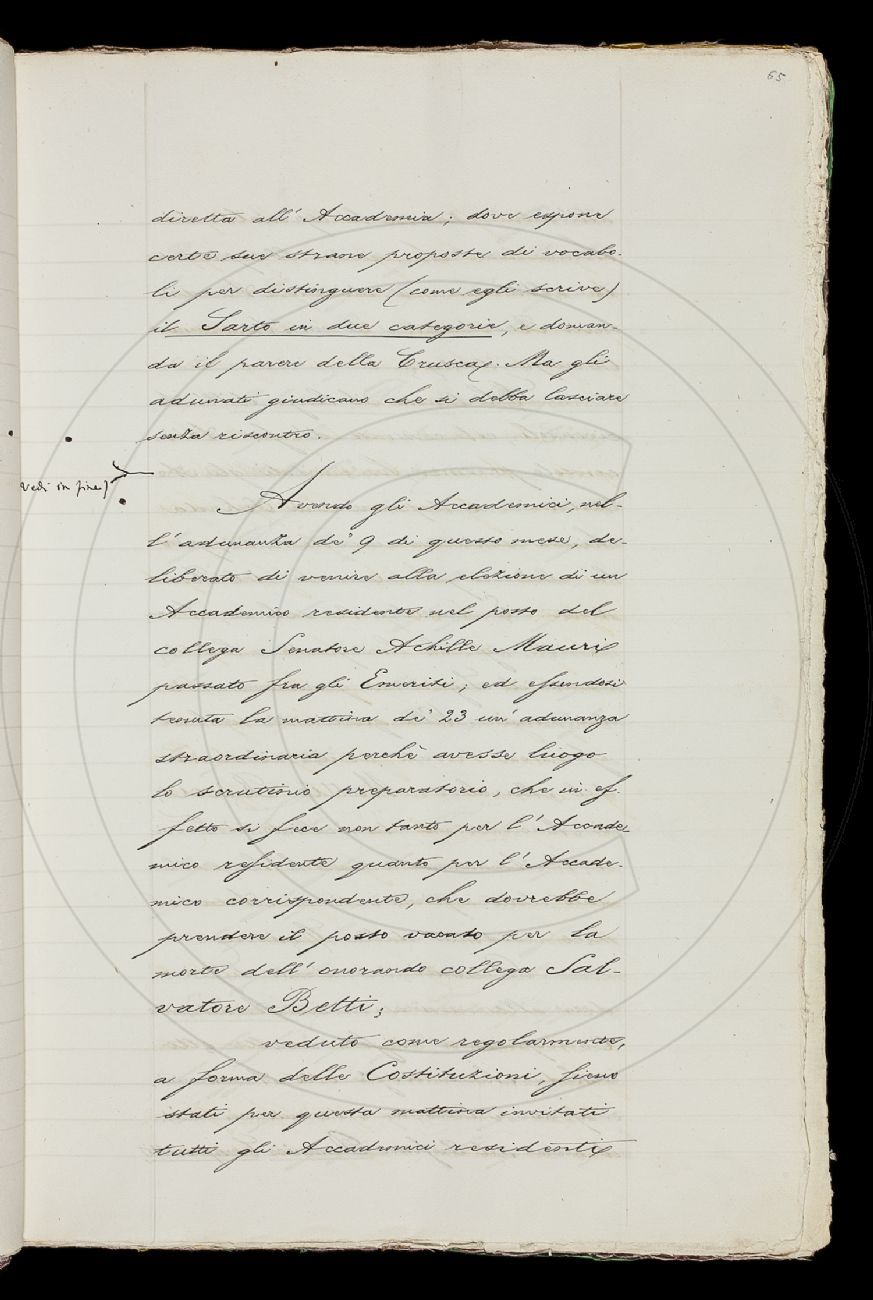 65
diretta all' Accademia; dove espone
certe sue strane proposte di vocabo-
li per distinguere (come egli scrive)
il Sarto in due categorie, e doman-
da il parere della Crusca. Ma gli
adunati giudicano che si debba lasciare
senza riscontro.
vedi in fine)
Avendo gli Accademici, nel-
l'adunanza de' 9 di questo mese, de-
liberato di venire alla elezione di un
Accademico residente nel posto del
collega Senatore Achille Mauri
passato fra gli Emeriti; ed essendosi
tenuta la mattina de' 23 un' adunanza
straordinaria perchè avesse luogo
lo scrutinio preparatorio, che in ef-
fetto si fece non tanto per l'Accade-
mico residente quanto per l'Accade-
mico corrispondente, che dovrebbe
prendere il posto vacato per la
morte dell' onorando collega Sal-
vatore Betti;
veduto come regolarmente,
a forma delle Costituzioni, sieno
stati per questa mattina invitati
tutti gli Accademici residenti